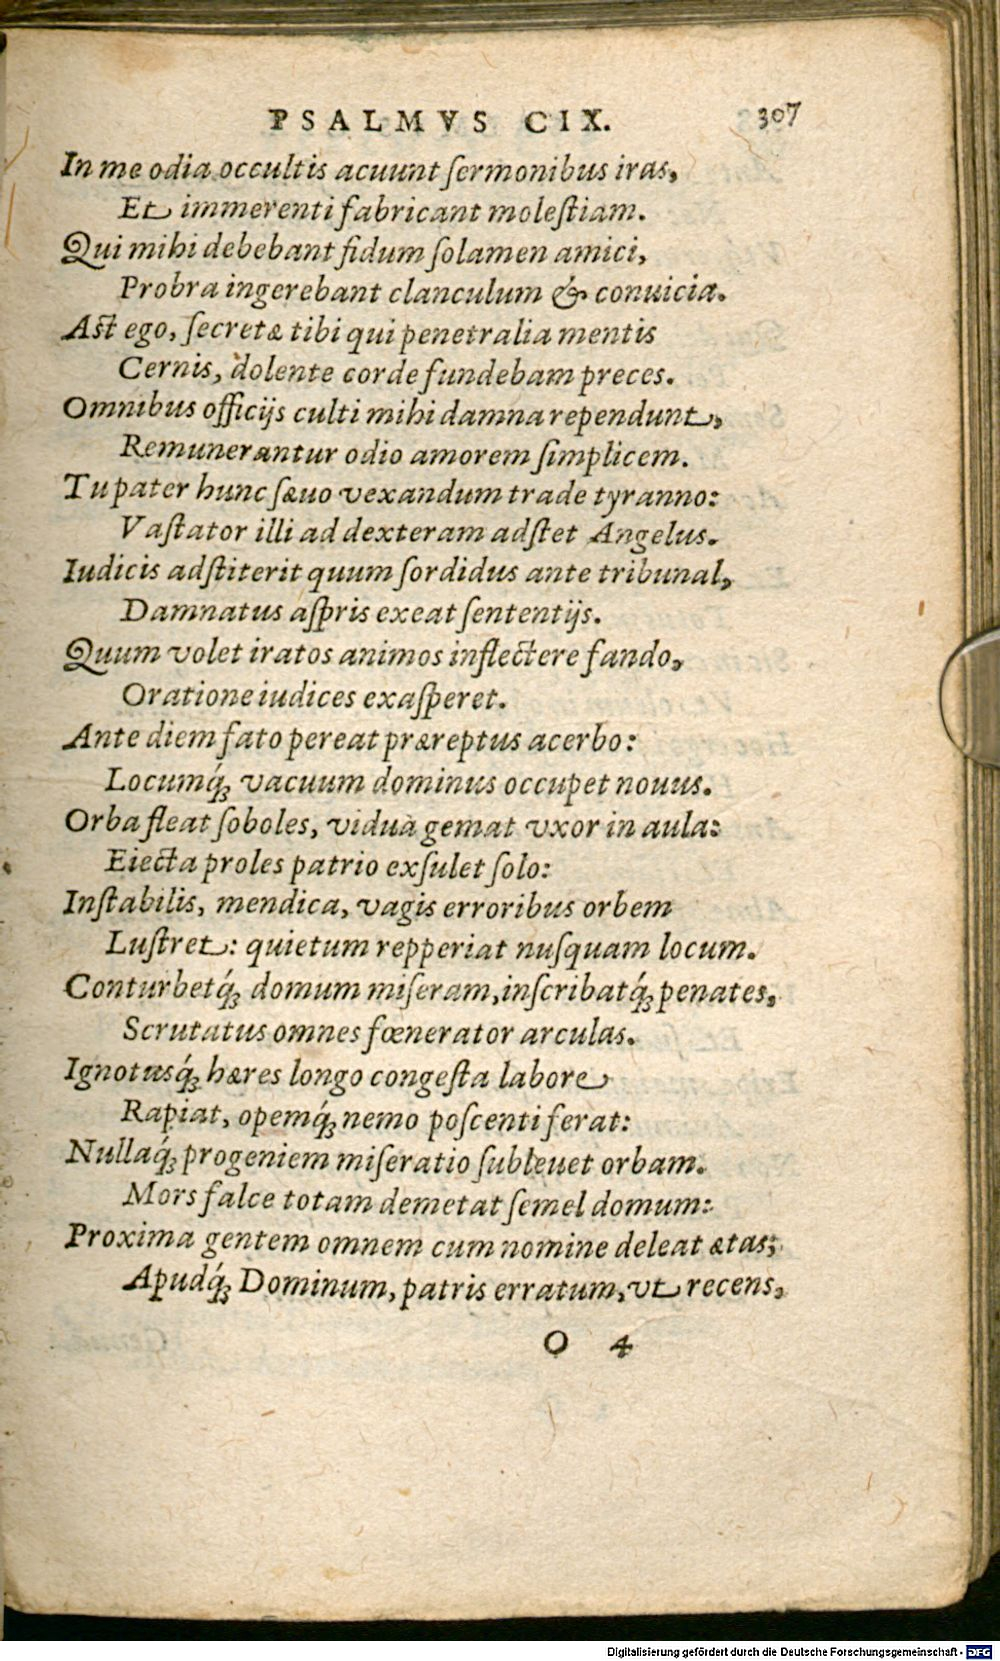 PSALMVS CIX. 307
In me odia occultis acuunt ſermonibus iras,
Et immerenti fabricant moleſtiam.
Qui mihi debebant fidum ſolamen amici,
Probra ingerebant clanculum & conuicia.
Aſt ego, ſecretæ tibi qui penetralia mentis
Cernis, dolente corde fundebam preces.
Omnibus officijs culti mihi damna rependunt,
Remunerantur odio amorem ſimplicem.
Tu pater hunc ſæuo vexandum trade tyranno:
Vaſtator illi ad dexteram adſtet Angelus.
Iudicis adſtiterit quum ſordidus ante tribunal,
Damnatus aſpris exeat ſententijs.
Quum volet iratos animos inflectere fando,
Oratione iudices exaſperet.
Ante diem fato pereat præreptus acerbo:
Locumq́ꝫ vacuum dominus occupet nouus.
Orba fleat ſoboles, viduà gemat vxor in aula:
Eiecta proles patrio exſulet ſolo:
Inſtabilis, mendica, vagis erroribus orbem
Luſtret: quietum repperiat nuſquam locum.
Conturbetq́ꝫ domum miſeram, inſcribatq́ꝫ penates,
Scrutatus omnes fœnerator arculas.
Ignotusq́ꝫ hæres longo congeſta labore
Rapiat, opemq́ꝫ nemo poſcenti ferat:
Nullaq́ꝫ progeniem miſeratio ſubleuet orbam.
Mors falce totam demetat ſemel domum:
Proxima gentem omnem cum nomine deleat ætas;
Apudq́ꝫ Dominum, patris erratum, vt recens,
O 4
Digitalisierung gefördert durch die Deutsche Forschungsgemeinschaft - DFG